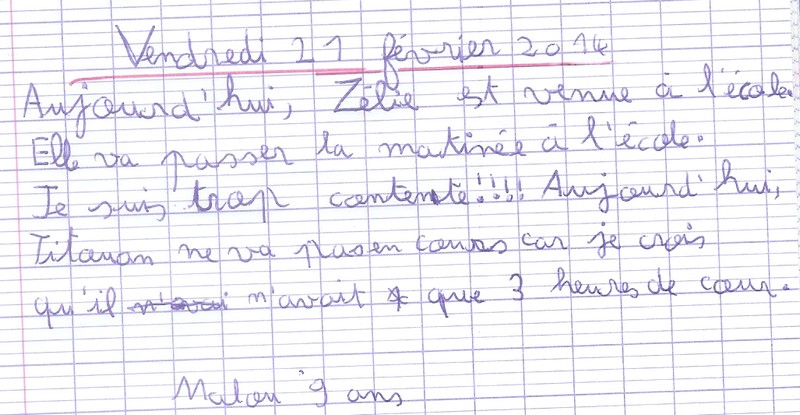 Vendredi 21 février 2014
Aujourd'hui, Zélie est venue à l'école.
Elle va passer la matinée à l'école.
Je suis trop contente!!!! Aujourd'hui,
Titouan ne va pas en cours car je crois
qu'il n'avait que 3 heures de cour.
Malou 9 ans